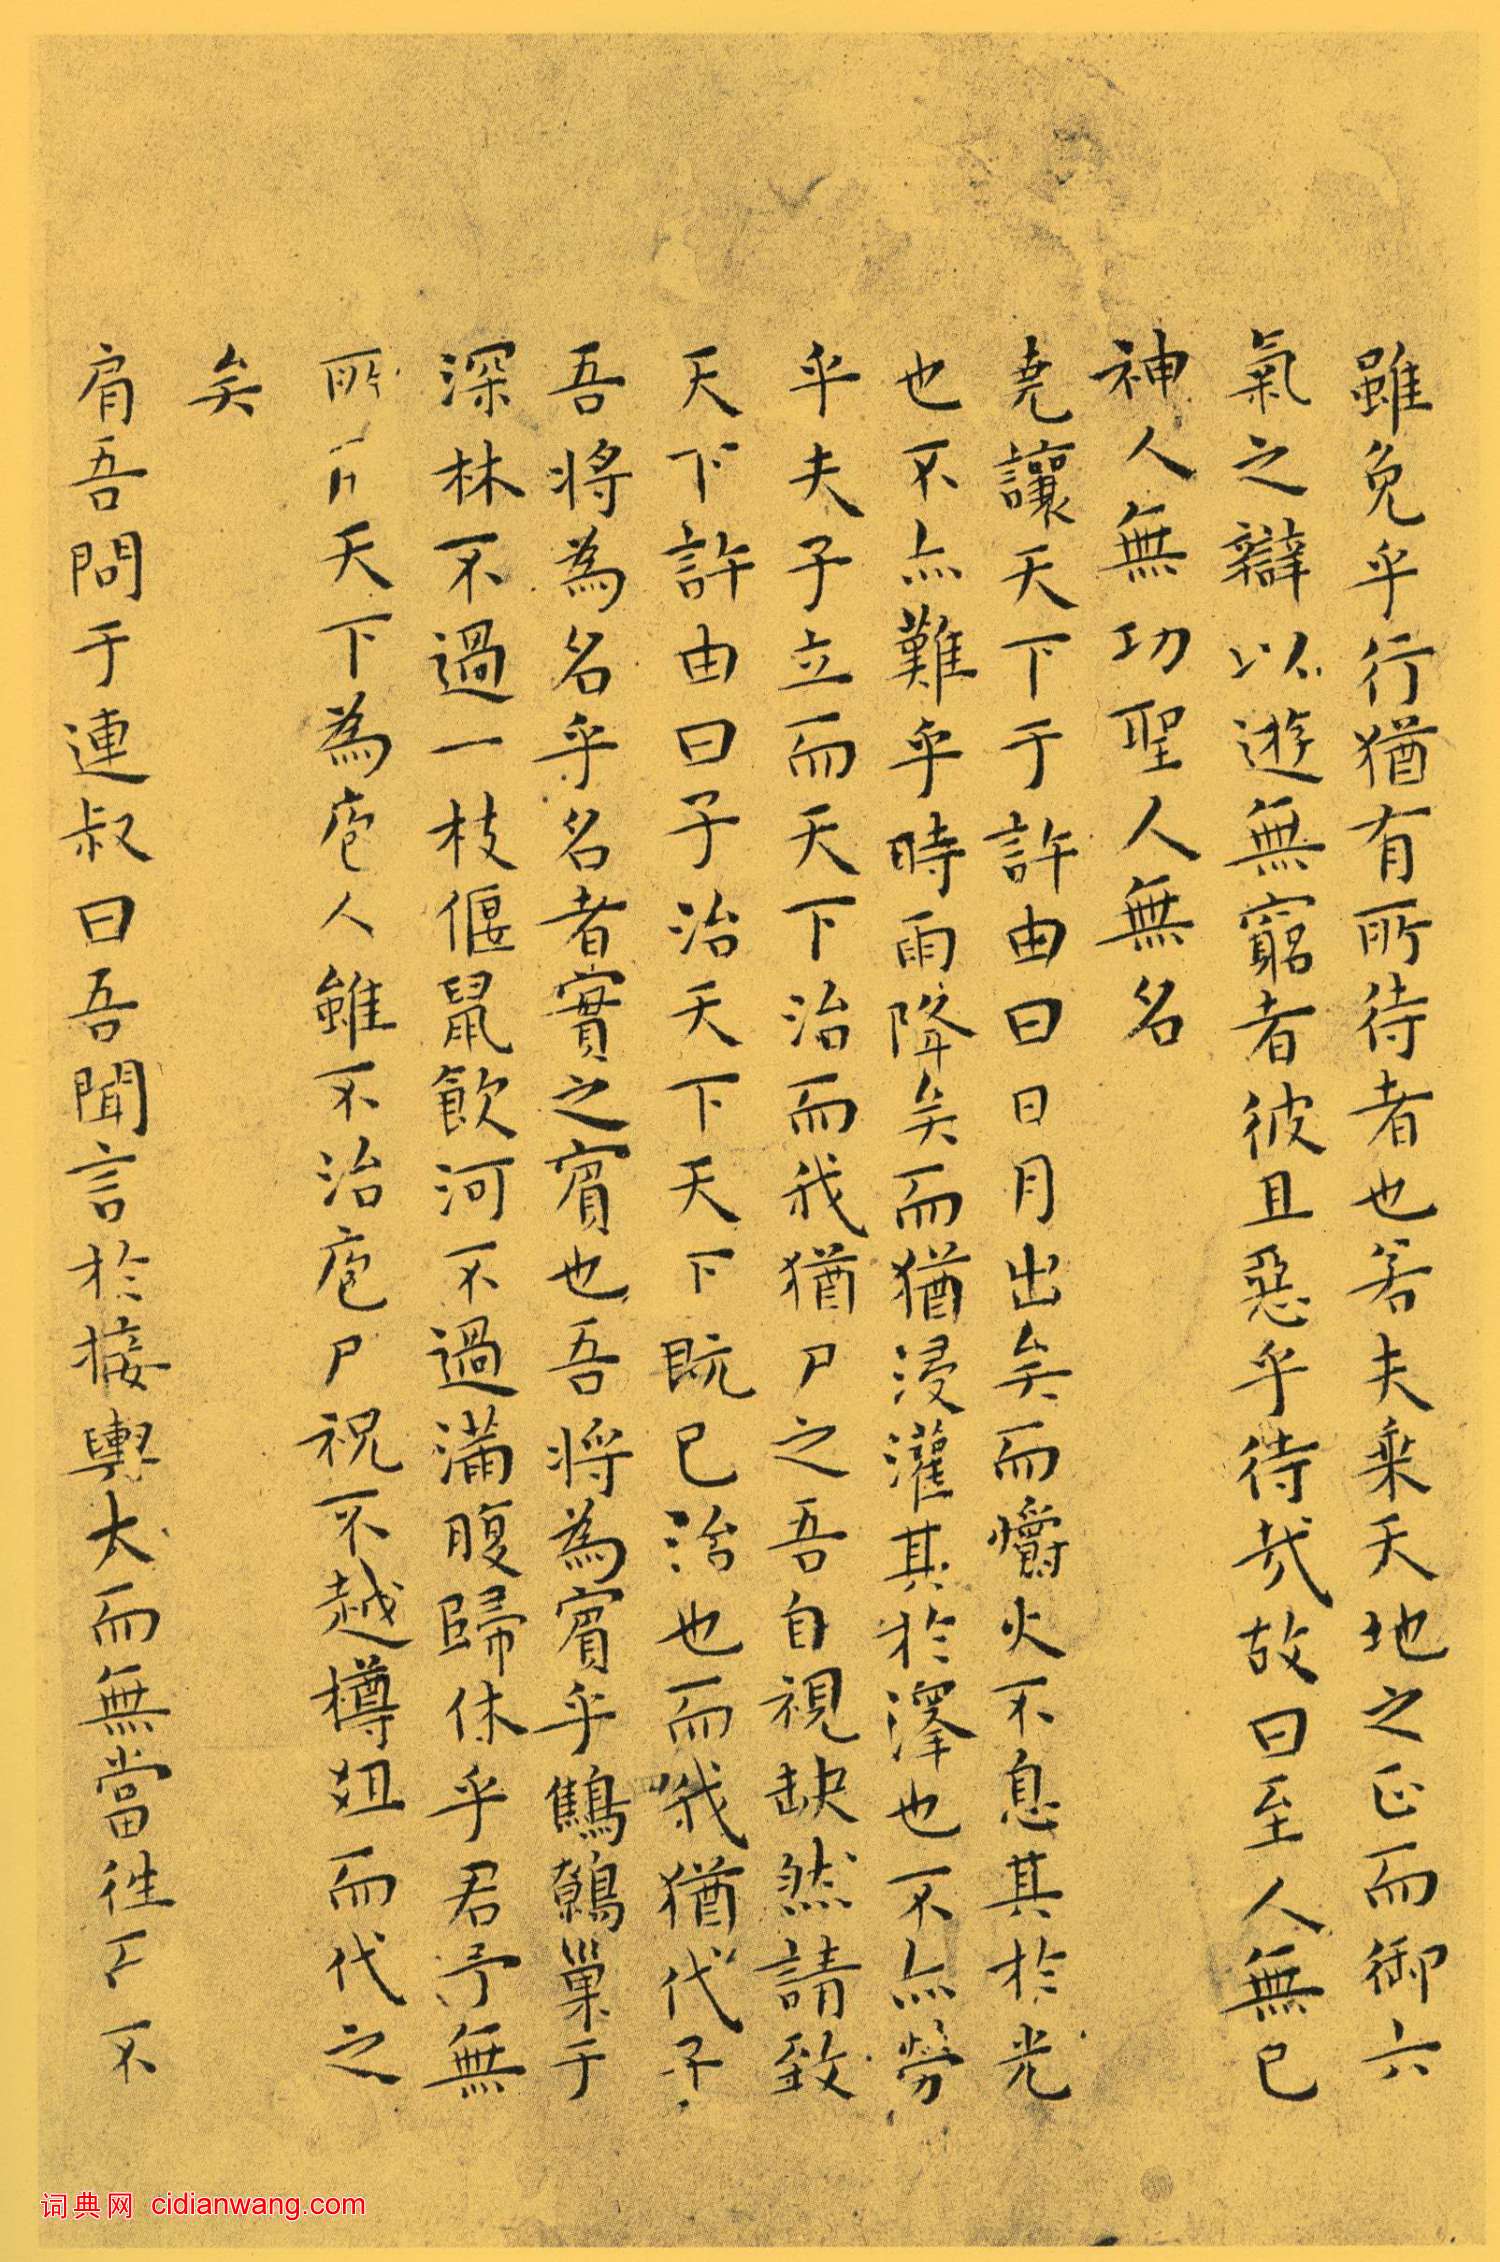 雖免乎行猶有所待者也若夫乘天地之正而御六
氣之辯以遊無窮者彼且惡乎待哉故曰至人無己
神人無功聖人無名
堯讓天下于許由曰日月出矣而爝火不息其於光
也不亦難乎時雨降矣而猶浸灌其於澤也不亦勞
乎夫子立而天下治而我猶尸之吾自視缺然請致
天下許由曰子治天下天下既已治也而我猶代子
吾將為名乎名者實之賓也吾將為賓乎鷦鷯巢于
深林不過一枝偃鼠飲河不過滿腹歸休乎君予無
所天下為庖人雖不治庖尸祝不越樽俎而代之
矣
肩吾問于連叔曰吾聞言於接輿大而無當往不
词典网 cidianwang.com